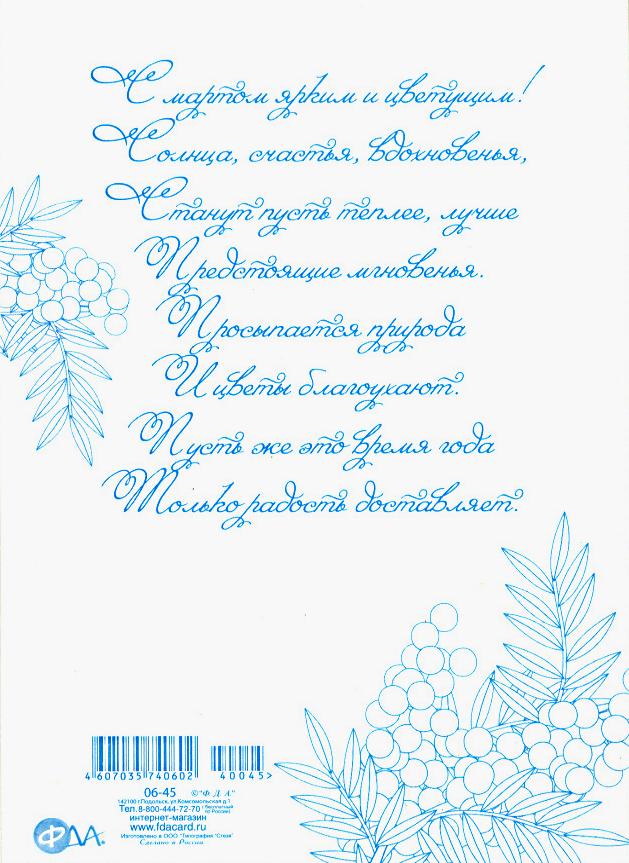 С мартом ярким и цветущим!
Солнца, счастья, вдохновенья,
Станут пусть теплее, лучше
Предстоящие мгновенья.
Просыпается природа
И цветы благоухают.
Пусть же это время года
Только радость доставляет.
4 607035 740602 40045>
06-45 ©"Ф.Д.А."
142100 г.Подольск, ул.Комсомольская д.1
Тел.8-800-444-72-70 (бесплатный по России)
интернет-магазин
www.fdacard.ru
Изготовлено в ООО "Типография "Стезя"
Сделано в России
ФДА.